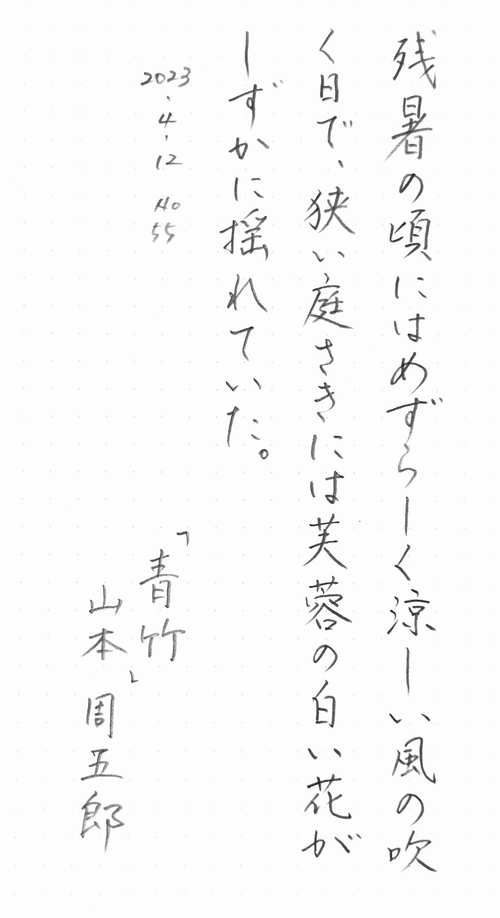 残暑の頃にはめずらしく涼しい風の吹
く日で、狭い庭さきには芙蓉の白い花が
しずかに揺れていた。
2023.4.12 No 55
「青竹」
山本周五郎